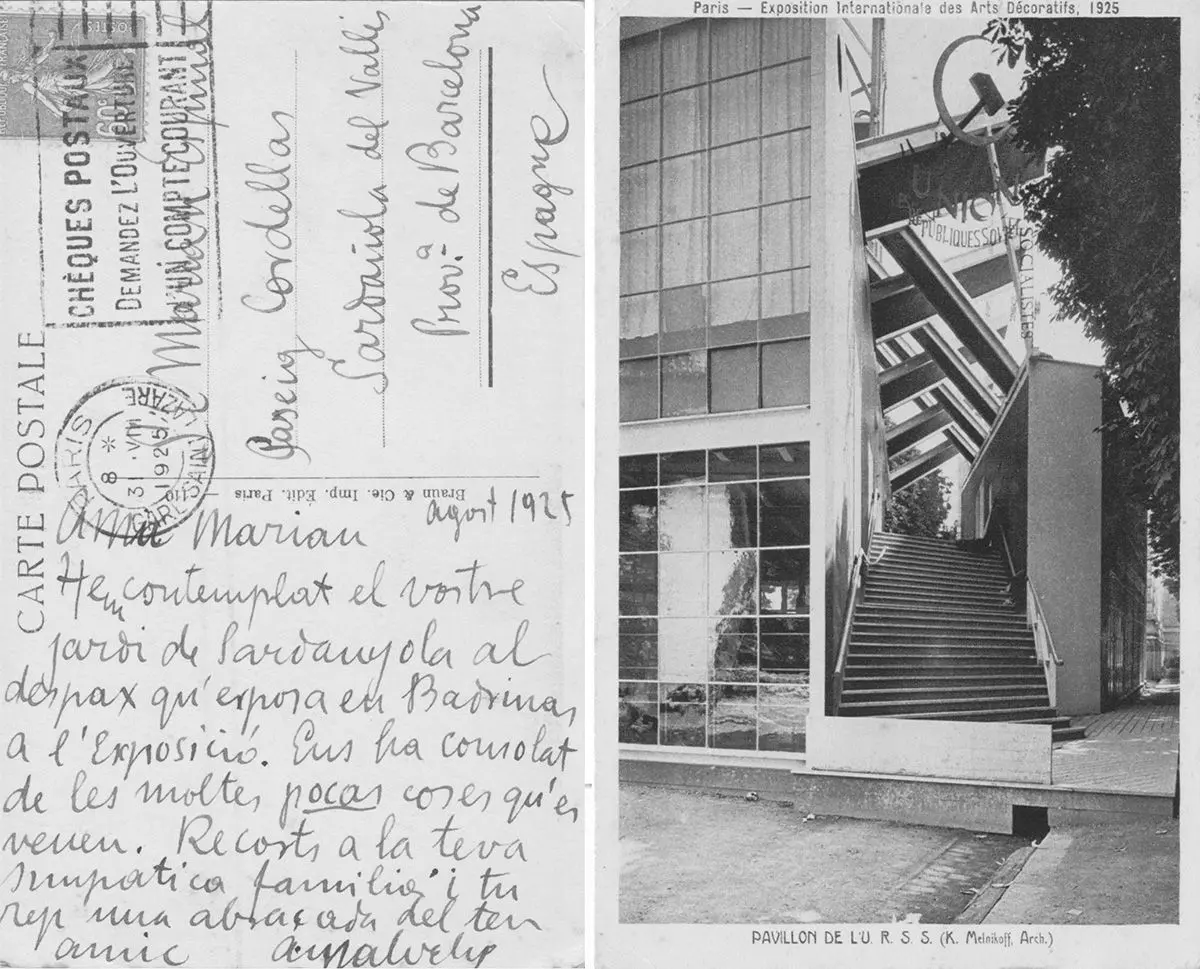 CARTE POSTALE
60c
CHÈQUES POSTAUX
DEMANDEZ L'OUVERTURE
D'UN COMPTE COURANT
PARIS
8 *
31 · VIII
1925
GARE SAINT LAZARE
Marian Espinal
Passeig Cordellas
Sardañola del Vallés
Prov.ª de Barcelona
Espagne
Braun & Cie. Imp. Édit. Paris
agost 1925
Amic Marian
Hem contemplat el vostre
jardi de Sardanyola al
despax qu'exposa en Badrinas
a l'Exposició. Ens ha consolat
de les moltes pocas coses qu'es
veuen. Recorts a la teva
simpatica familia i tu
rep una abraçada del teu
amic
Paris — Exposition Internationale des Arts Décoratifs, 1925
UNION
RÉPUBLIQUES
SOCIALISTES
PAVILLON DE L'U. R. S. S. (K. Melnikoff, Arch.)